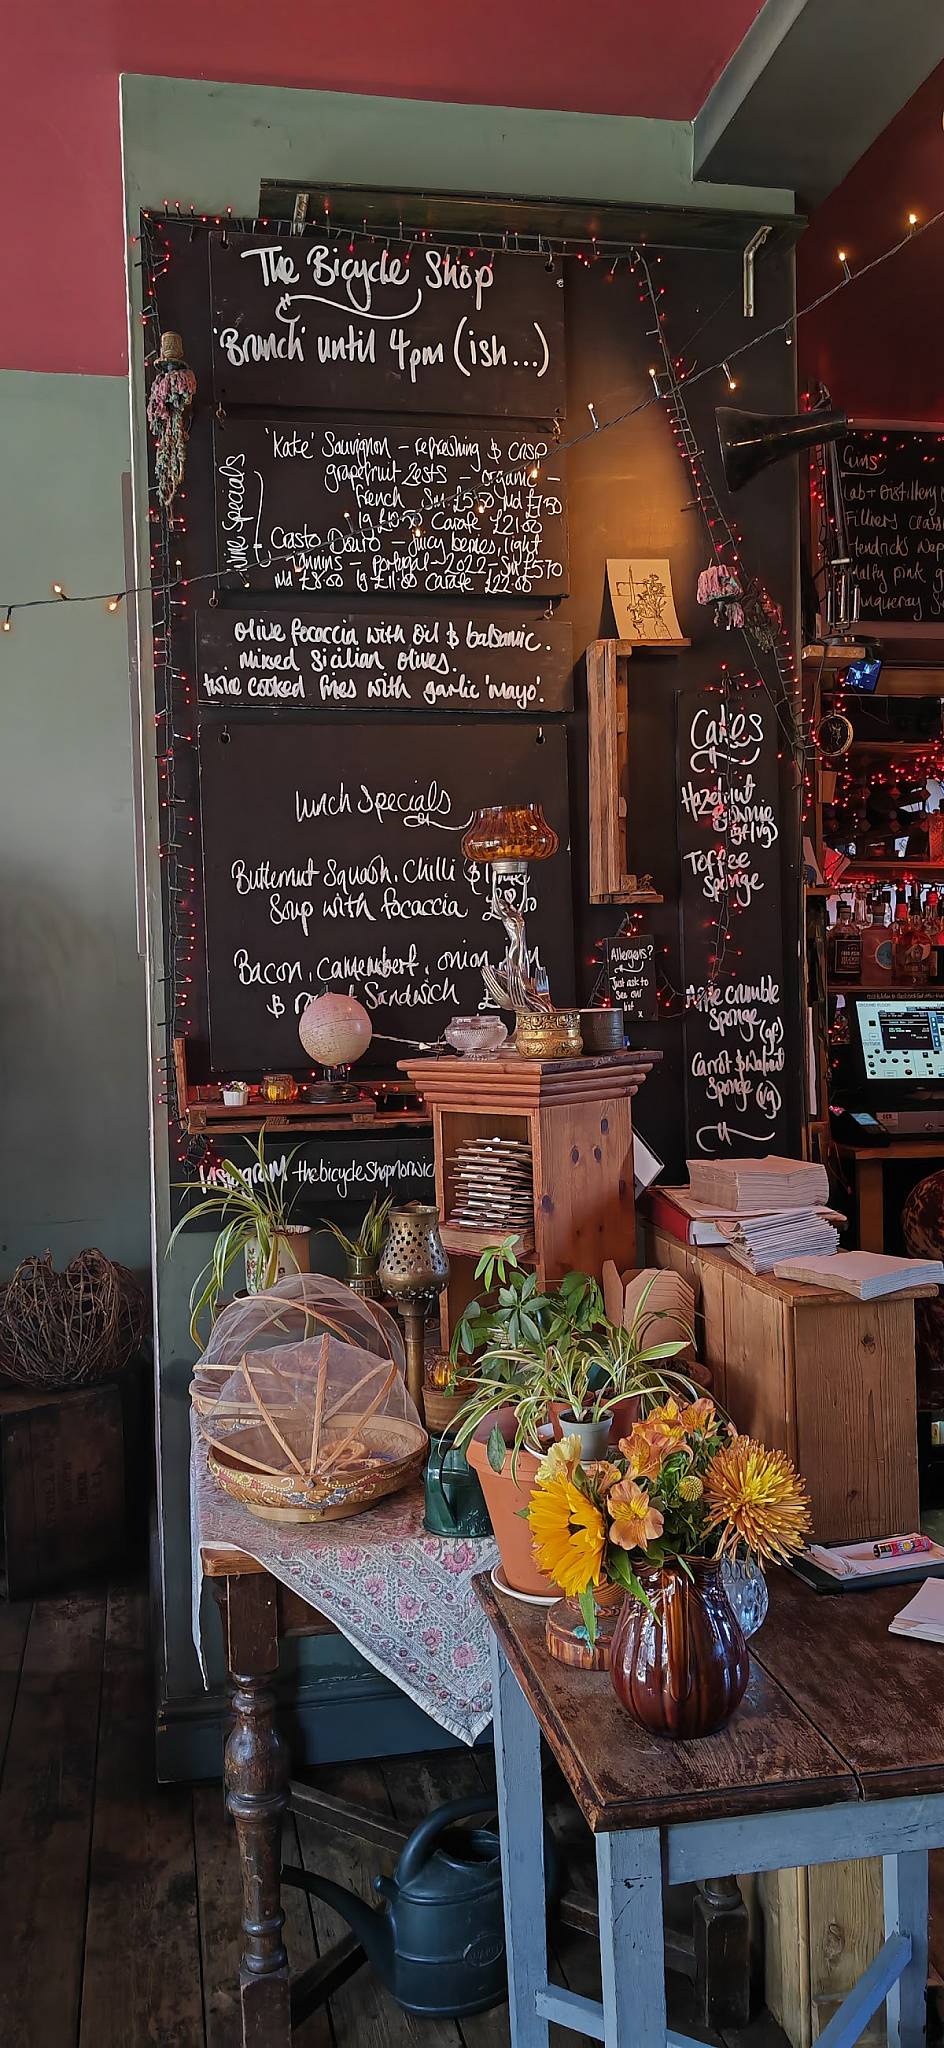 The Bicycle Shop
'Brunch' until 4pm (ish...)
Wine Specials
'Kate' Sauvignon - refreshing & crisp
grapefruit zests - organic -
French Sm £5.50 Md £7.50
lg £10.50 Carafe £21.00
Casto Douro - juicy berries, light
tannins - Portugal - 2022 - Sm £5.70
Md £8.00 lg £11.00 Carafe £22.00
Olive focaccia with oil & balsamic.
Mixed Sicilian olives.
twice cooked fries with garlic 'mayo'.
Lunch Specials
Butternut Squash, Chilli &
Soup with focaccia
Bacon, camembert, onion
& Sandwich
Allergens?
Just ask to
see our
list x
Cakes
Hazelnut
Brownie
(gf/vg)
Toffee
Sponge
crumble
Sponge (gf)
Carrot & Walnut
Sponge (vg)
Instagram thebicycleshopnorwich
Gins
Distillery
Filliers Class
Hendricks
Malfy pink g